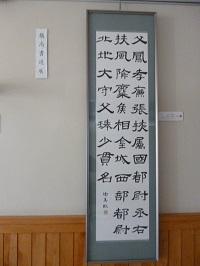 父鳳孝廉張掖屬國都尉丞右
扶風隃麋侯相金城西部都尉
北地大守父琫少貫名